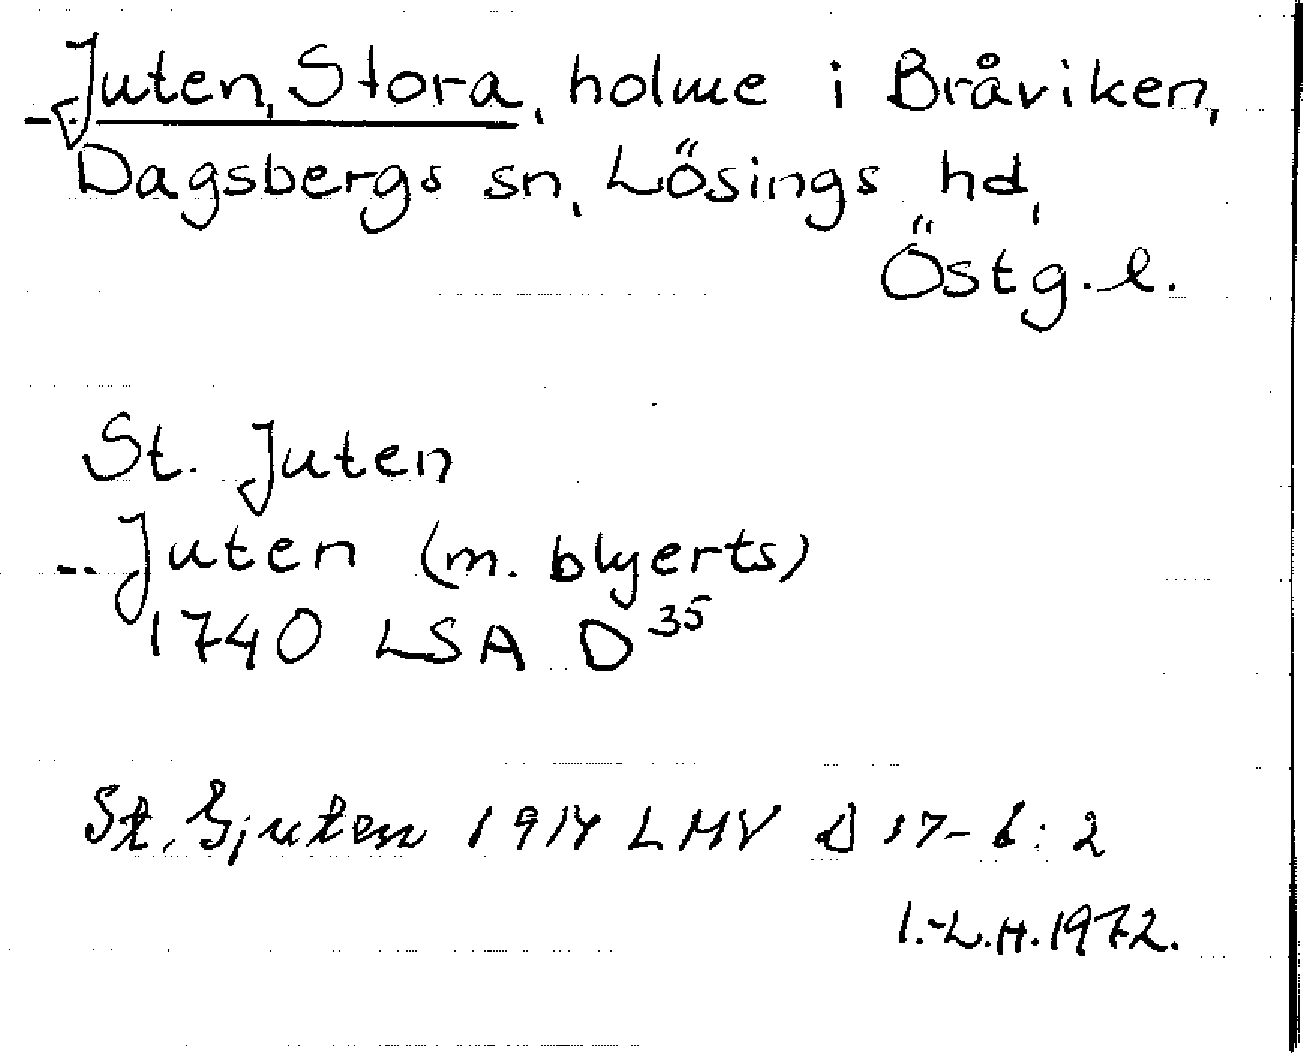 Juten, Stora, holme i Bråviken,
Dagsbergs sn, Lösings hd,
Östg.l.
St. Juten
Juten (m. blyerts)
1740 LSA D 35
St. Gjuten 1914 LMV D 17-6:2
I.-L.H. 1972.